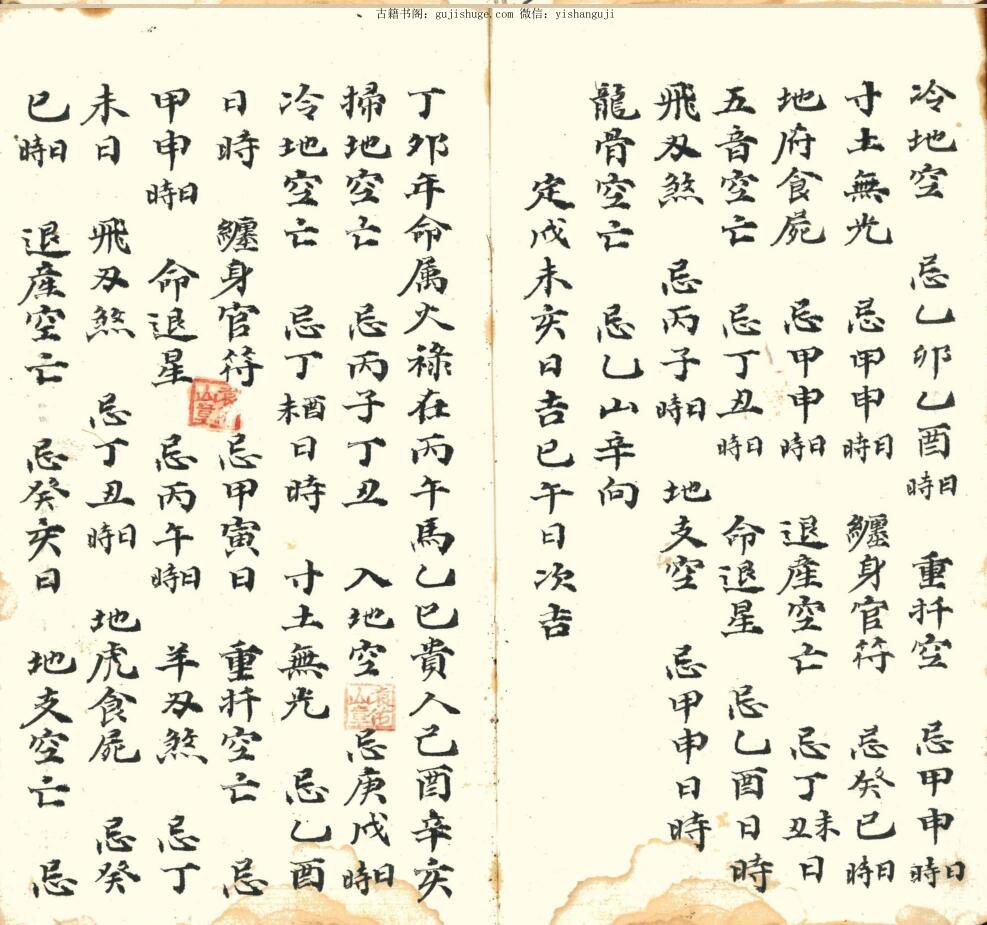 古籍书阁：gujishuge.com 微信：yishanguji
冷地空 忌乙卯乙酉日時 重扦空 忌甲申日時
寸土無光 忌甲申日時 纏身官符 忌癸巳日時
地府食屍 忌甲申日時 退產空亡 忌丁丑未日
五音空亡 忌丁丑日時 命退星 忌乙酉日時
飛刃煞 忌丙子日時 地支空 忌甲申日時
龍骨空亡 忌乙山辛向
定戍未亥日吉巳午日次吉
丁卯年命属火祿在丙午馬乙巳貴人己酉辛亥
掃地空亡 忌丙子丁丑 入地空 忌庚戍日時
冷地空亡 忌丁酉未日時 寸土無光 忌乙酉
日時 纏身官符 忌甲寅日 重扦空亡 忌
甲申日時 命退星 忌丙午日時 羊刃煞 忌丁
未日 飛刃煞 忌丁丑日時 地虎食屍 忌癸
巳日時 退產空亡 忌癸亥日 地支空亡 忌